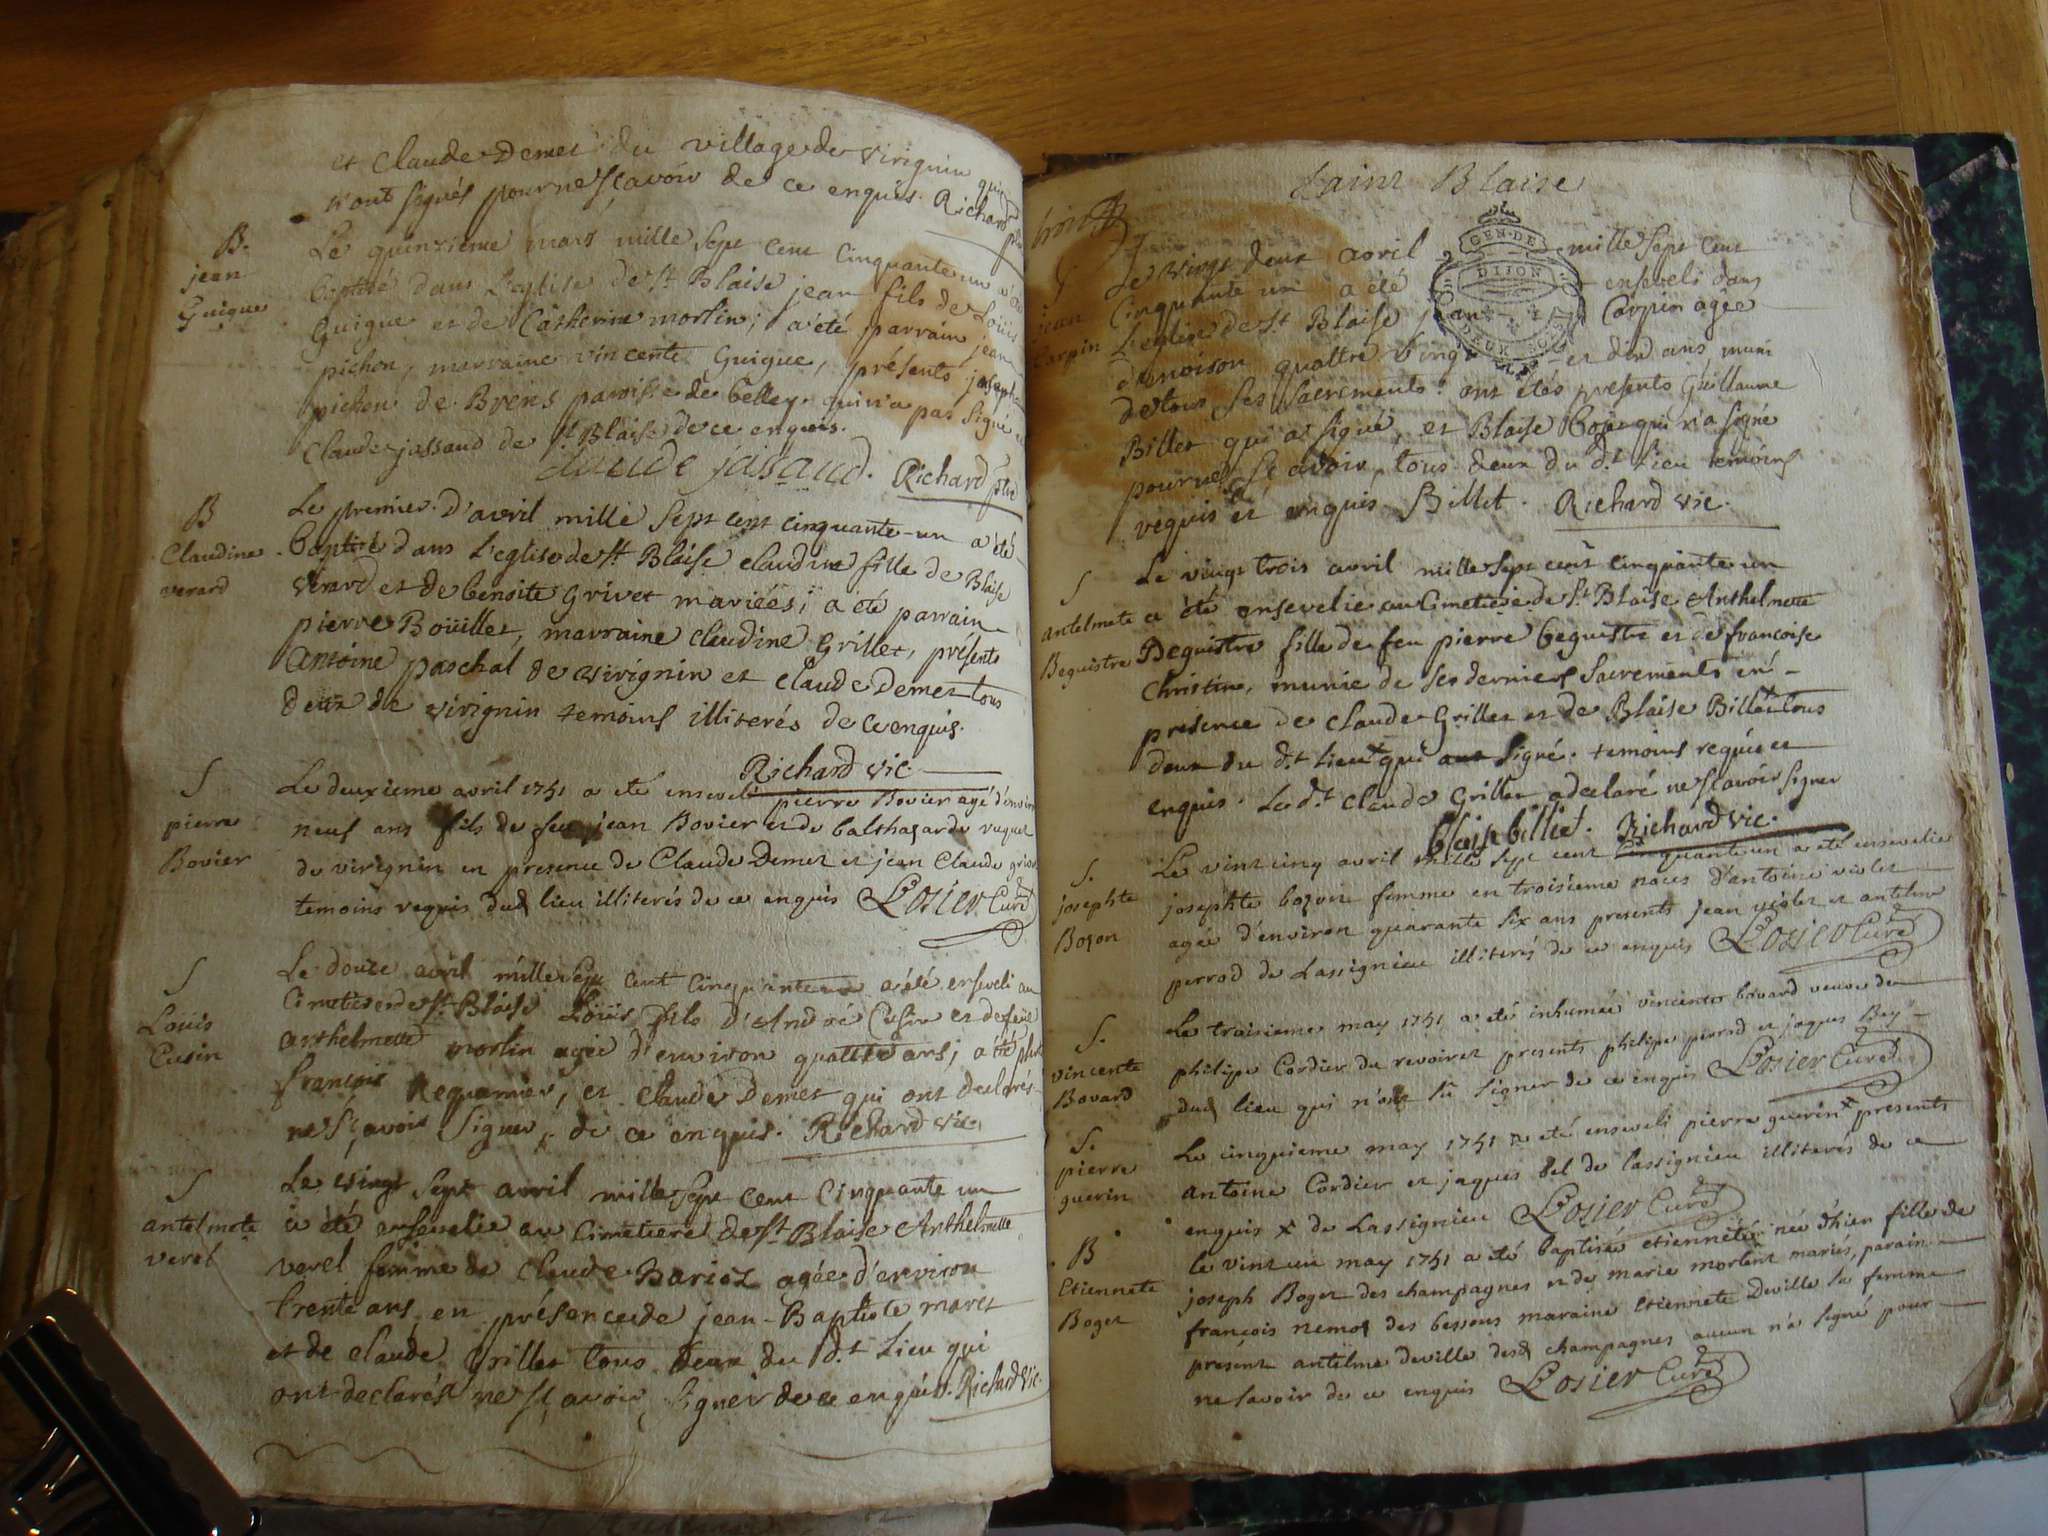 et Claude Demet du village de virignin qui
n'ont signés pour ne sçavoir de ce enquis. Richard ptre
B.
jean
Guigue
Le quinzieme mars mille sept cent cinquante un a été
baptisé dans L'eglise de st Blaise jean fils de Loüis
Guigue et de Catherine morlin; a été parrain jean
pichon, marraine vincente Guigue, présents joseph
pichon de Brens paroisse de belley qui n'a pas signé et
Claude jassaud de st Blaise de ce enquis.
claude jasaud. Richard ptre
B
Claudine
verard
Le premier d'avril mille sept cent cinquante-un a été
baptisé dans L'eglise de st Blaise claudine fille de Blaise
verard et de benoite Grivet mariées; a été parrain
pierre Boüillet, marraine claudine Grillet, présents
Antoine paschal de virignin et claude Demet tous
deux de virignin temoins illiterés de ce enquis.
Richard vic
S
pierre
Bovier
Le deuxieme avril 1751 a eté enseveli pierre Bovier agé d'environ
neuf ans fils de feu jean Bovier et de balthazarde
de virignin en presence de Claude Demet et jean Claude
temoins requis dud lieu illiterés de ce enquis Losier Curé
S
Loüis
Cusin
Le douze avril mille sept cent cinquante un a été enseveli au
Cimetiere de st Blaise Loüis fils d'André Cusin et de feüe
Anthelmette morlin agée d'environ quattre ans; a été
françois Requamier, et Claude Demet qui ont declarés
ne sçavoir signer, de ce enquis. Richard vic.
S
antelmete
verel
Le vingt sept avril mille sept cent cinquante un
a été ensevelie au Cimetiere de st Blaise Anthelmette
verel femme de Claude Bariot agée d'environ
trente ans en présence de jean-Baptiste maret
et de claude Grillet tous deux du d.t Lieu qui
ont declarés ne sçavoir signer de ce enquis. Richard vic.
saint Blaise
GEN. DE
DIJON
S
jean
Carpin
Le vingt deux avril mille sept cent
cinquante un a été enseveli dans
L'eglise de st Blaise jean Carpin agée
d'environ quattre vingt et dix ans, muni
de tous ses sacrements: ont étés présents Guillaume
Billet qui a signé, et Blaise qui n'a signé
pour ne sçavoir, tous deux du d.t Lieu temoins
requis et enquis. Billet. Richard vic.
S
antelmete
Beguistre
Le vingt trois avril mille sept cent cinquante un
a été ensevelie au Cimetiere de st Blaise Anthelmette
Beguistre fille de feu pierre beguistre et de francoise
Christin, munie de ses derniers sacrements en-
présence de claude Grillet et de Blaise Billet tous
deux du d.t Lieu qui ont signé. temoins requis et
enquis. Le d.t claude Grillet a declaré ne sçavoir signer
blaise billiet. Richard vic.
S.
josephte
Bozon
Le vint cinq avril mille sept cent cinquante un a eté ensevelie
josephte bozon femme en troisieme noces d'antoine violet
agée d'environ quarante six ans presents jean violet et antelme
perrod de Lassignieu illiterés de ce enquis Losier Curé
S.
vincente
Bovard
Le troisieme may 1751 a eté inhumée vincente bovard veuve de
philipe Cordier du revoiret presents philipe perrod et jaques Bey
dud lieu qui n'ont sû signer de ce enquis Losier Curé
S.
pierre
guerin
Le cinquieme may 1751 a eté enseveli pierre guerin x presents
antoine Cordier et jaques bel de lassignieu illiterés de ce
enquis x de Lassignieu Losier Curé
B
Etiennete
Boget
le vint un may 1751 a eté baptisée etienneté née d'hier fille de
joseph Boget des champagnes et de marie morlent mariés, parain
françois nemoz des bessons maraine Etiennete Deville sa femme
présent antelme deville desd champagnes aucun n'a signé pour
ne savoir de ce enquis Losier Curé